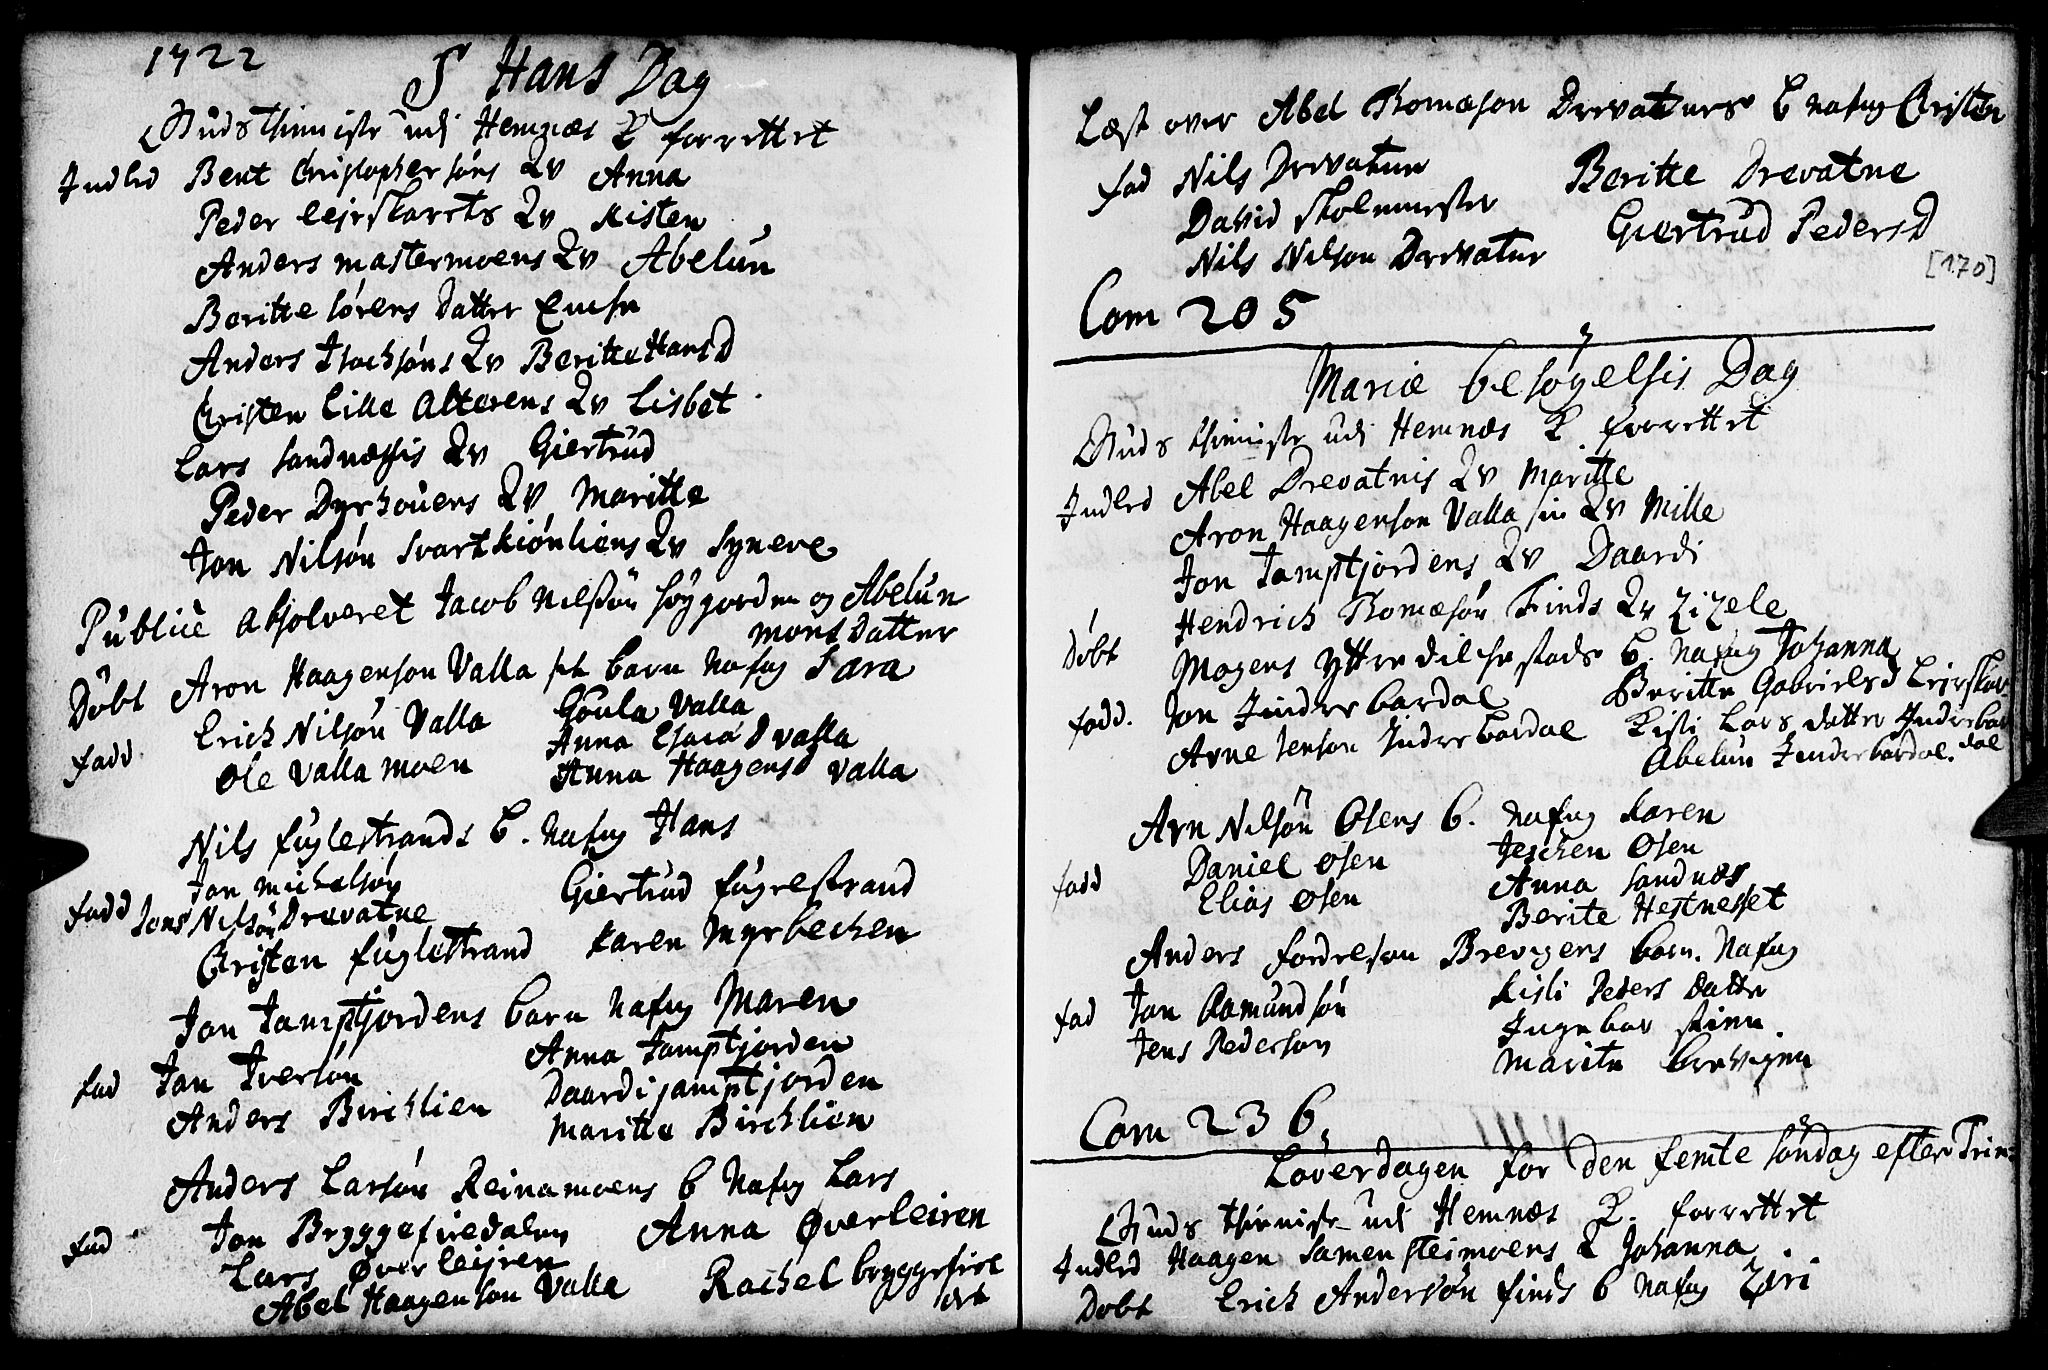 1722
S Hans Dag
Guds thieniste udi Hemnæs K forrettet
Indled Bent Christophersöns Qv Anna
Peder leirskarets Qv Kisten
Anders mastermoens Qv Abelun
Beritte Sörens datter
Anders Isachsöns Qv Beritte HansD
Christen Lille Alterens Qv Lisbet
Lars Sandnæssis Qv Giertrud
Peder Dyrhouens Qv Maritte
Jon Nilsön Svartkiönliens Qv Syneve
Publice absolveret Jacob Nelsön Höygorden og Abelun
mons datter
Döbt Aron Haagenson Valla barn Nafng Sara
fadd Erich Nilsön Valla Goula Valla
Ole Valla moen Anna D valla
Anna Haagensd valla
Nils fuglestrands b. Nafng Hans
fadd Jon michelsön Giertrud fuglestrand
Jons Nilsön Drevatne
Christen fuglestrand Karen Myrbechen
Jon Jamptjordens barn Nafng Maren
fad Jon Iversön Anna Jamptjorden
Anders Birchlien Daardi jamptjorden
Maritte Birchlien
Anders Larsön Reinamoens b Nafng Lars
fad Jon Bryggefieedalen Anna Øverleiren
Lars Øverleiren
Abel Haagenson Valla Rachel
Læst over Abel Thomæson Drevatners b nafng Christen
fad Nils Drevatne Beritte Drevatne
David skolemester Giertrud PedersD
Nils Nilson Drevatne
[170]
Com 205
Mariæ besögelsis Dag
Guds thieniste udi Hemnæs K forrettet
Indled Abel Drevatnis Qv Maritte
Aron Haagenson Valla sin Qv Mille
Jon Jamptjordens Qv Daardi
Hendrich Thomæsön Finds Qv Zizele
Döbt Mogens yttre b. Nafng Johanna
fadd. Jon Indrebardal Beritte Gabrielsd Leirskar
Arne Jenson Indrebardal Kisti Lars datter Indrebar
dal
Abelun Indrebardal.
Arn Nilsön Osens b. nafng Karen
fadd Daniel Osen Jeschen Osen
Elias Osen Anna Sandnæs
Berite Hestnesset
Anders fordreson Brevigens barn. Nafng
fad Jon Aamundsön Kisti Peders Datter
Jens Pederson Ingebor
Marite brevigen
Com 236
Löverdagen for den femte söndag efter Trin:
Guds thieniste udi Hemnæs K. forrettet
Indled Haagen Samensteimoens Q Johanna
Döbt Erich Andersön finds b Nafng Zæri